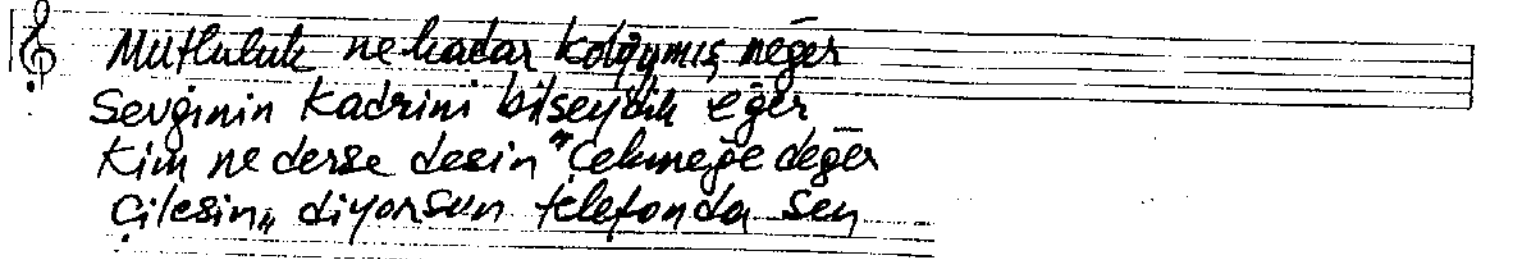 Mutluluk ne kadar kolaymış meğer
Sevginin kadrini bilseydik eğer
Kim ne derse desin "Çekmeğe değer
Çilesin„ diyorsun telefonda sen